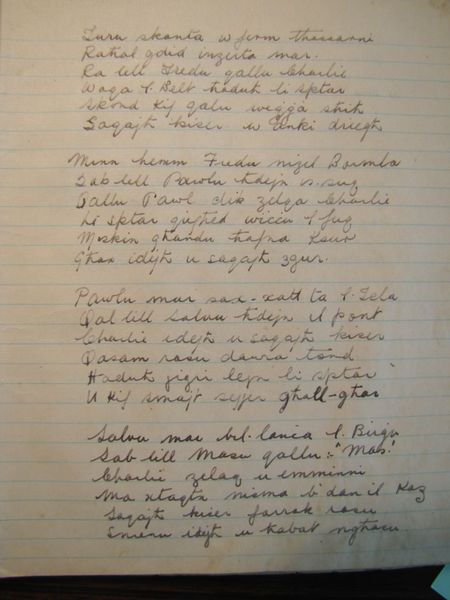 Turu skanta w ferm thassarni
Rahal gdid inzerta mar.
Ra lill Fredu qallu Charlie
Waqa l. Belt haduh li sptar
skond kif qalu weġġa shih
Saqajh kiser u Idejh driegh

Minn hemm Fredu nizel Bormla
Sab lill Pawlu hdejn is. suq
Qallu Pawl dik zelqa Charlie
Li sptar qighed wiċċu l fuq
Miskin ghandu hafna ksur
Ghax idejh u saqajh zgur.

Pawlu mar sax-xatt ta l. Isla
Qal lill Salvu hdejn il pont
Charlie idejh u saqajh kiser
Qasam rasu dawra tond
Haduh jigri lejn li sptar
U kif smajt sejjer ghall-ghar

Salvu mar bil. lanċa l. Birgu
Sab lill Masu qallu: "Mas."
Charlie zelaq u emminni
Ma xtaqtx nisma b'dan il każ
Saqajh kiser farrak rasu
Smenu idejh u kabat nghasu.